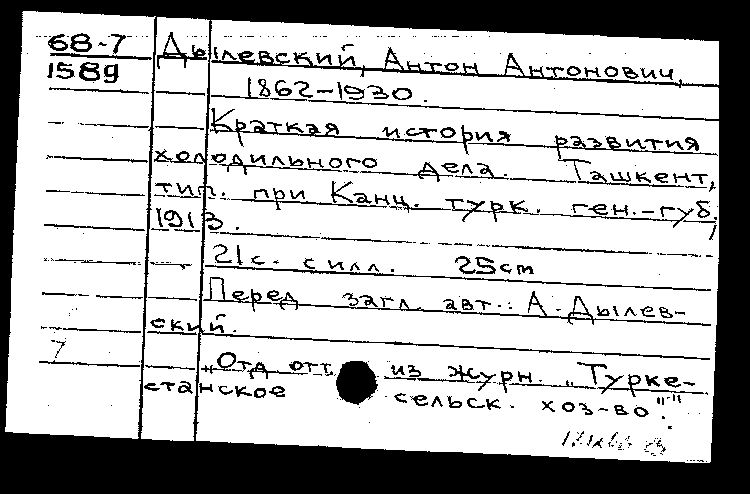 68-7
1589
Дылевский, Антон Антонович,
1862-1930.
Краткая история развития
холодильного дела. Ташкент,
тип. при Канц. турк. ген.-губ.,
1913.
21с. с илл. 25cm
Перед загл. авт.: А. Дылев-
ский.
„Отд. отт. из журн. „Турке-
станское сельск. хоз-во"".